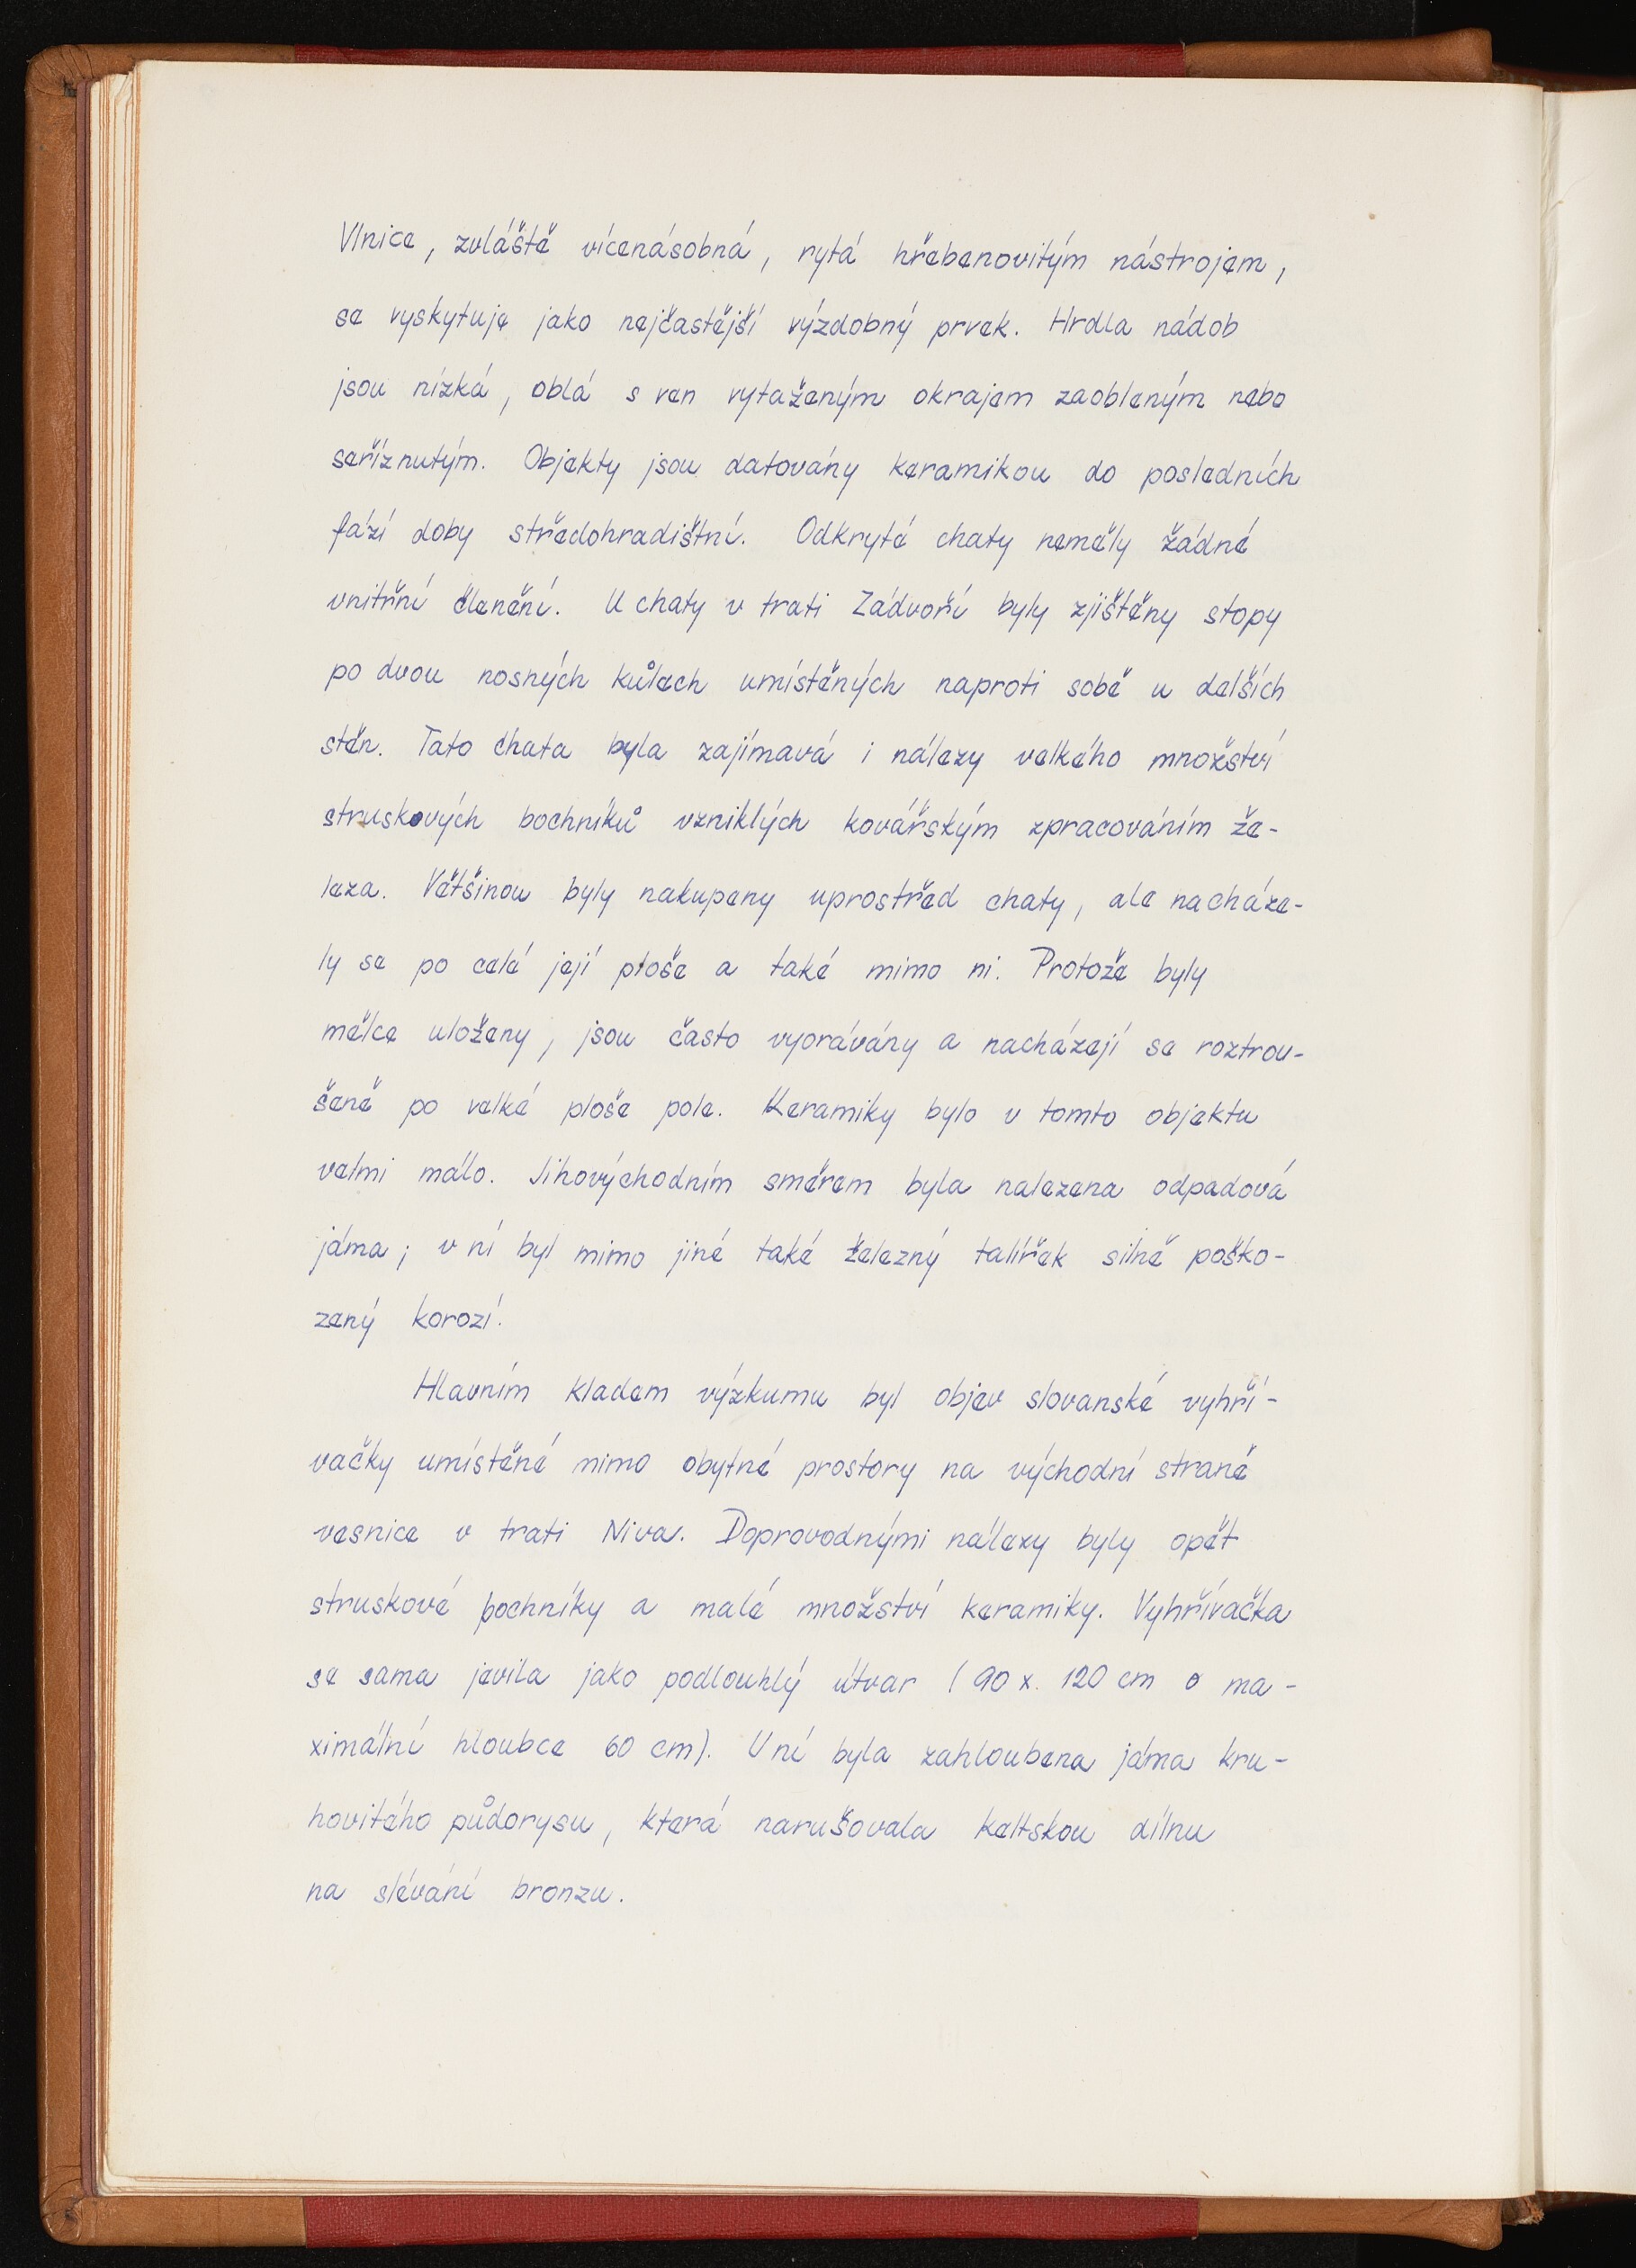 Vlnice, zvláště vícenásobná, rytá hřebenovitým nástrojem,
se vyskytuje jako nejčastější výzdobný prvek. Hrdla nádob
jsou nízká, oblá s ven vytaženým okrajem zaobleným nebo
seříznutým. Objekty jsou datovány keramikou do posledních
fází doby středohradištní. Odkryté chaty neměly žádné
vnitřní členění. U chaty v trati Zádvoří byly zjištěny stopy
po dvou nosných kůlech umístěných naproti sobě u delších
stěn. Tato chata byla zajímavá i nálezy velkého množství
struskových bochníků vzniklých kovářským zpracováním že-
leza. Většinou byly nakupeny uprostřed chaty, ale nacháze-
ly se po celé její ploše a také mimo ni. Protože byly
mělce uloženy, jsou často vyorávány a nacházejí se roztrou-
šeně po velké ploše pole. Keramiky bylo v tomto objektu
velmi málo. Jihovýchodním směrem byla nalezena odpadová
jáma; v ní byl mimo jiné také železný talířek silně poško-
zený korozí.
Hlavním kladem výzkumu byl objev slovanské vyhří-
vačky umístěné mimo obytné prostory na východní straně
vesnice v trati Niva. Doprovodnými nálezy byly opět
struskové bochníky a malé množství keramiky. Vyhřívačka
se sama jevila jako podlouhlý útvar (90 x. 120 cm o ma-
ximální hloubce 60 cm). V ní byla zahloubena jáma kru-
hovitého půdorysu, která narušovala keltskou dílnu
na slévání bronzu.